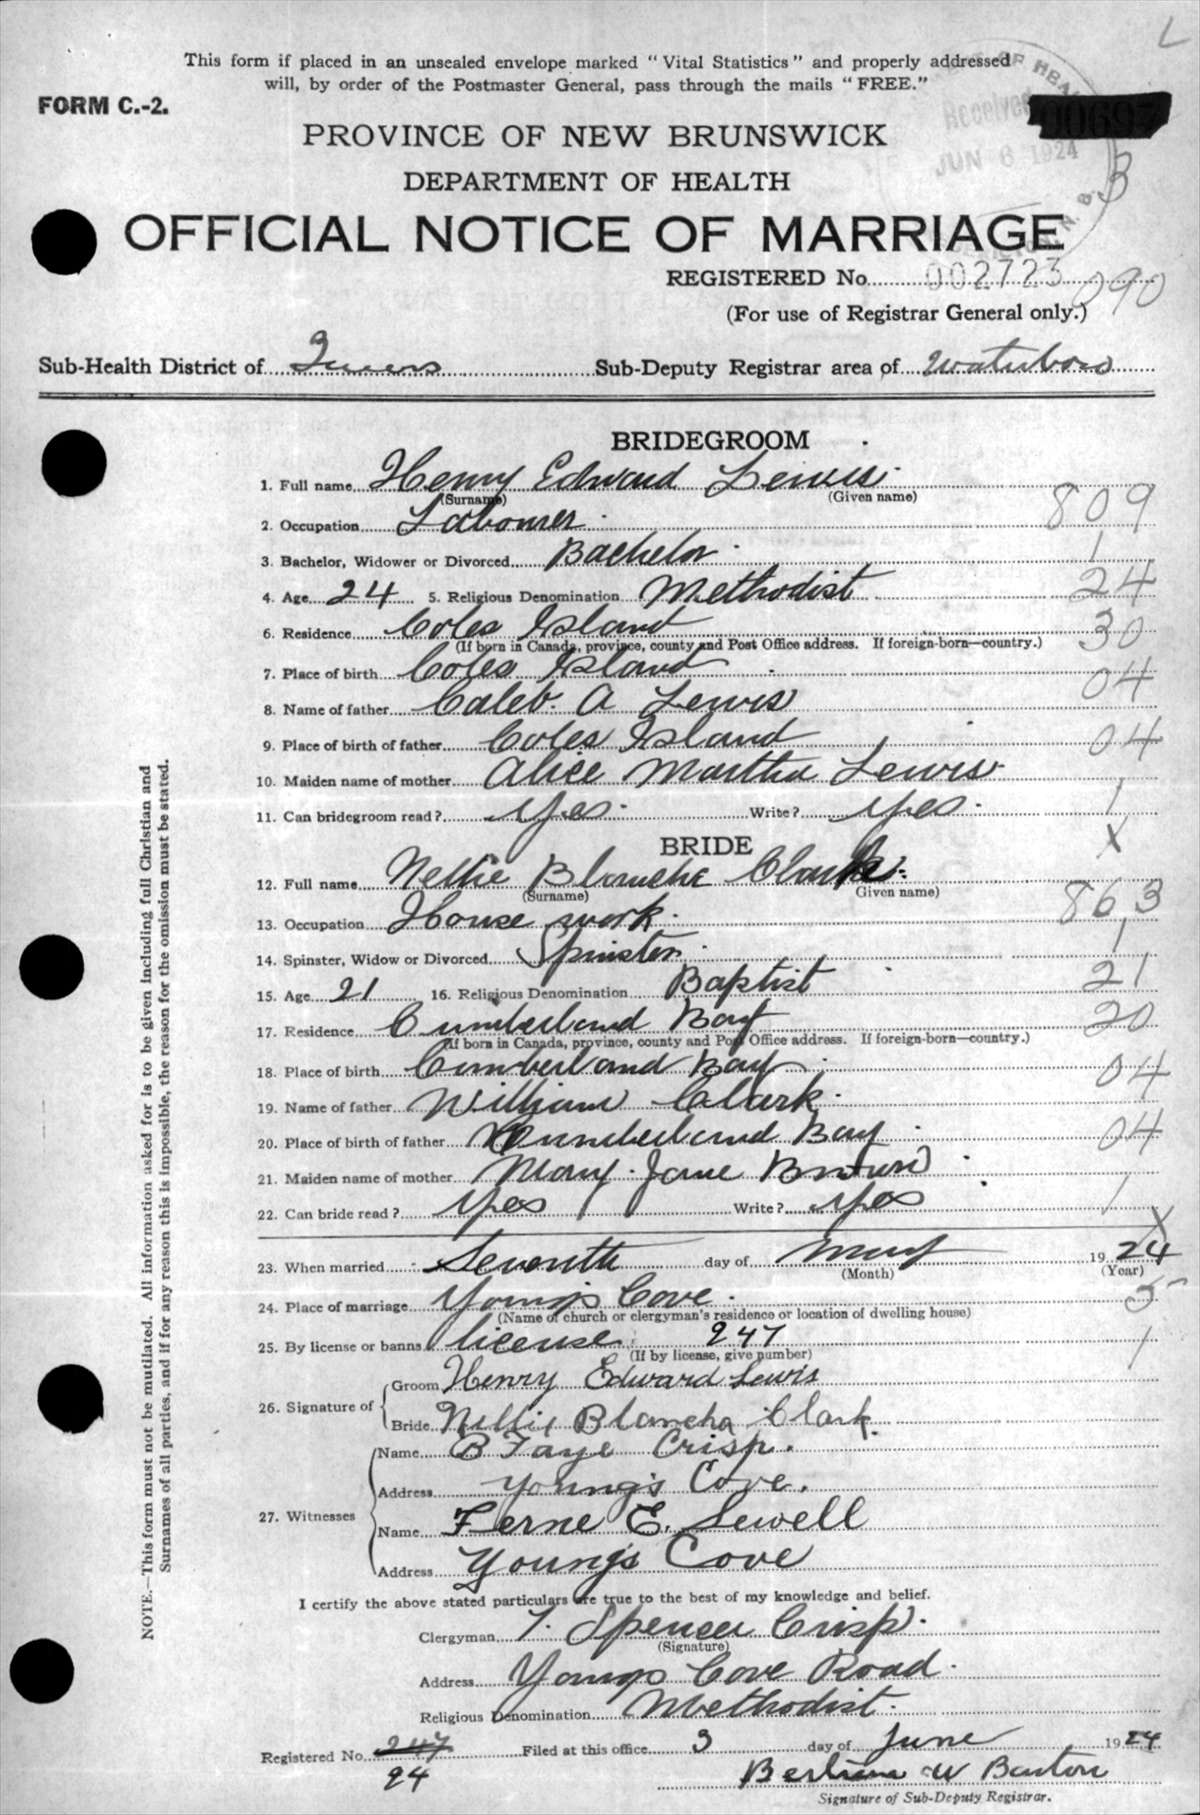 L
This form if placed in an unsealed envelope marked "Vital Statistics" and properly addressed
will, by order of the Postmaster General, pass through the mails "FREE."
FORM C.-2.
Received
00697
JUN 6 1924
3
PROVINCE OF NEW BRUNSWICK
DEPARTMENT OF HEALTH
OFFICIAL NOTICE OF MARRIAGE
REGISTERED No. 002723
090
(For use of Registrar General only.)
Sub-Health District of Queens Sub-Deputy Registrar area of Waterboro
BRIDEGROOM
1. Full name Henry Edward Lewis
(Surname) (Given name)
2. Occupation Labourer 809
3. Bachelor, Widower or Divorced Bachelor 1
4. Age 24 5. Religious Denomination Methodist 24
6. Residence Coles Island 30
(If born in Canada, province, county and Post Office address. If foreign-born—country.)
7. Place of birth Coles Island 04
8. Name of father Caleb. A Lewis
9. Place of birth of father Coles Island 04
10. Maiden name of mother Alice Martha Lewis
11. Can bridegroom read? Yes. Write? Yes. 1
BRIDE X
12. Full name Nellie Blanche Clark
(Surname) Given name)
13. Occupation House work. 863
14. Spinster, Widow or Divorced Spinster 1
15. Age 21 16. Religious Denomination Baptist 21
17. Residence Cumberland Bay 20
(If born in Canada, province, county and Post Office address. If foreign-born—country.)
18. Place of birth Cumberland Bay 04
19. Name of father William Clark.
20. Place of birth of father Cumberland Bay 04
21. Maiden name of mother Mary Jane
22. Can bride read? Yes Write? Yes 1
X
23. When married Seventh day of May 1924
(Month) (Year)
24. Place of marriage Youngs Cove. 5
(Name of church or clergyman's residence or location of dwelling house)
25. By license or banns license 247 1
(If by license, give number)
26. Signature of
Groom Henry Edward Lewis
Bride Nellie Blancha Clark.
27. Witnesses
Name B Faye Crisp.
Address Young's Cove.
Name Ferne E. Sewell
Address Young's Cove
I certify the above stated particulars are true to the best of my knowledge and belief.
Clergyman T. Spencer Crisp.
(Signature)
Address Youngs Cove Road.
Religious Denomination Methodist.
Registered No. 247 Filed at this office 3 day of June 1924
24
Bertram W Barton
Signature of Sub-Deputy Registrar.
NOTE.—This form must not be mutilated. All information asked for is to be given including full Christian and
Surnames of all parties, and if for any reason this is impossible, the reason for the omission must be stated.